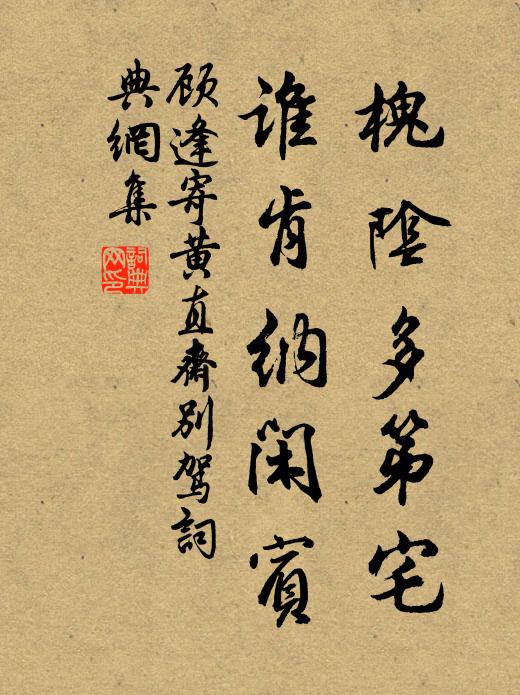 槐陰多第宅
誰肯納閑賓
顾逢寄黄直齋別駕詞
典網集
詞典
网印